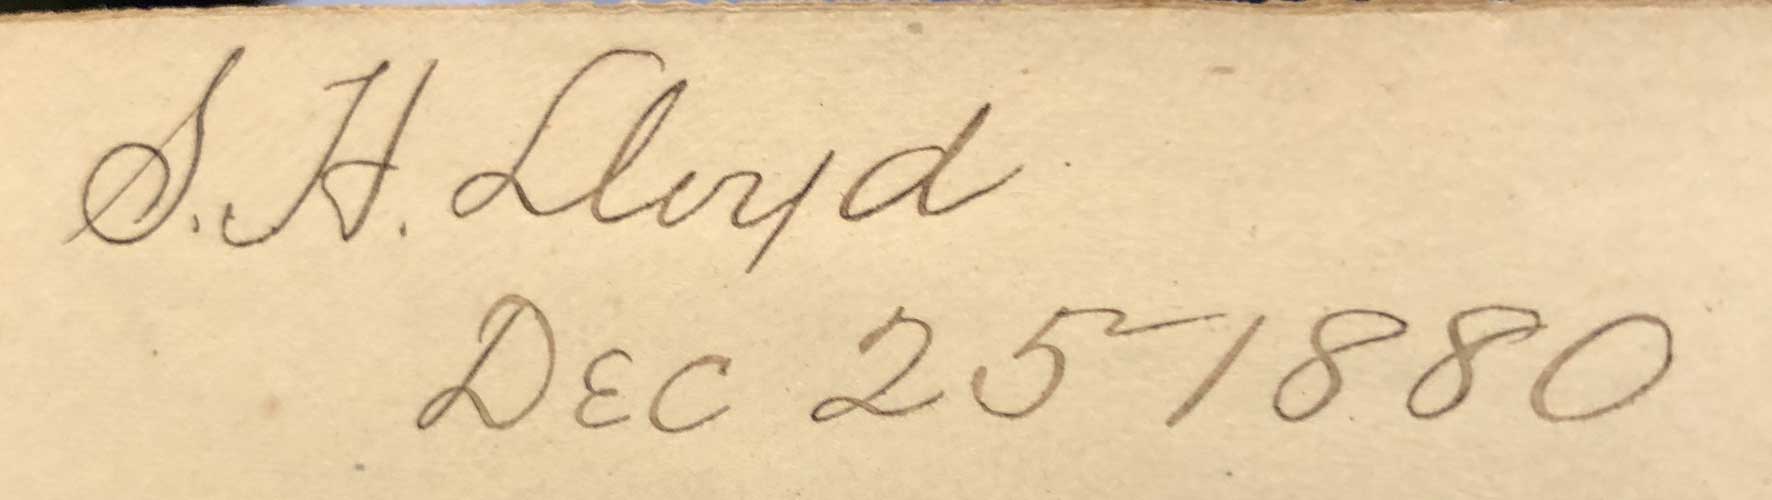 S. H. Lloyd
Dec 25 1880